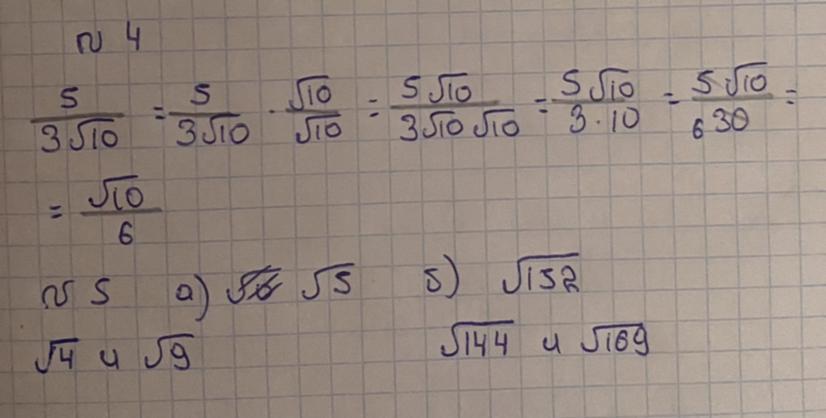 № 4
5/(3√10) = 5/(3√10) · √10/√10 = 5√10/(3√10√10) = 5√10/(3·10) = 5√10/(6 30) =
= √10/6
№ 5 а) √5 б) √152
√4 и √9 √144 и √169